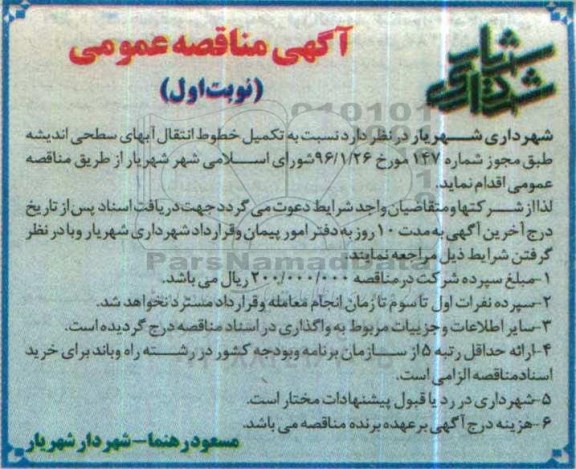 شهرداری شهریار
آگهی مناقصه عمومی
(نوبت اول)
شهرداری شهریار در نظر دارد نسبت به تکمیل خطوط انتقال آبهای سطحی اندیشه
طبق مجوز شماره ۱۴۷ مورخ ۹۶/۱/۲۶ شورای اسلامی شهر شهریار از طریق مناقصه
عمومی اقدام نماید.
لذا از شرکتها و متقاضیان واجد شرایط دعوت می گردد جهت دریافت اسناد پس از تاریخ
درج آخرین آگهی به مدت ۱۰ روز به دفتر امور پیمان و قرارداد شهرداری شهریار و با در نظر
گرفتن شرایط ذیل مراجعه نمایند.
ParsNamadData
۱-مبلغ سپرده شرکت در مناقصه ۲۰۰/۰۰۰/۰۰۰ ریال می باشد.
۲-سپرده نفرات اول تا سوم تا زمان انجام معامله و قرارداد مسترد نخواهد شد.
۳-سایر اطلاعات و جزییات مربوط به واگذاری در اسناد مناقصه درج گردیده است.
۴-ارائه حداقل رتبه ۵ از سازمان برنامه وبودجه کشور در رشته راه وباند برای خرید
اسناد مناقصه الزامی است.
۵-شهرداری در رد یا قبول پیشنهادات مختار است.
۶-هزینه درج آگهی بر عهده برنده مناقصه می باشد.
مسعود رهنما-شهردار شهریار